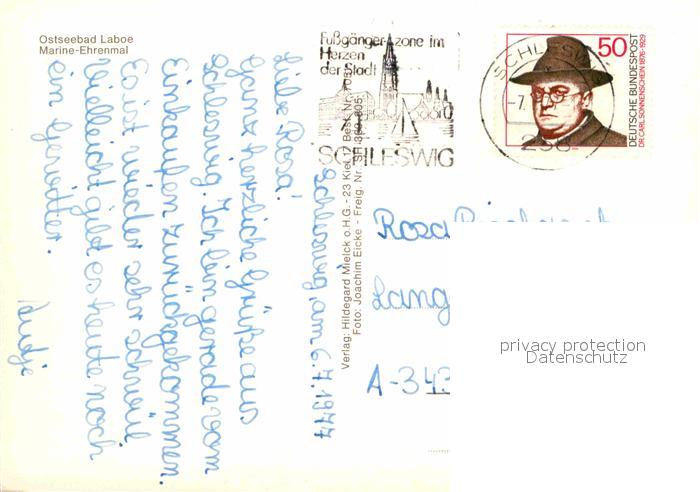 Ostseebad Laboe
Marine-Ehrenmal
Fußgängerzone im
Herzen
der Stadt
SCHLESWIG
SCHLESWIG
-7.
238
50
DEUTSCHE BUNDESPOST
DR CARL SONNENSCHEIN 1876-1929
Verlag: Hildegard Mielck o.H.G. - 23 Kiel 17 Best. Nr.
Foto: Joachim Eicke - Freig. Nr. SH
Schleswig, am 6.7.1977
Liebe Rosa!
Ganz herzliche Grüße aus
Schleswig. Ich bin gerade vom
Einkaufen zurückgekommen.
Es ist wieder sehr schwül
Vielleicht gibt es heute noch
ein Gewitter.
Rosa
Lang
A-343
privacy protection
Datenschutz